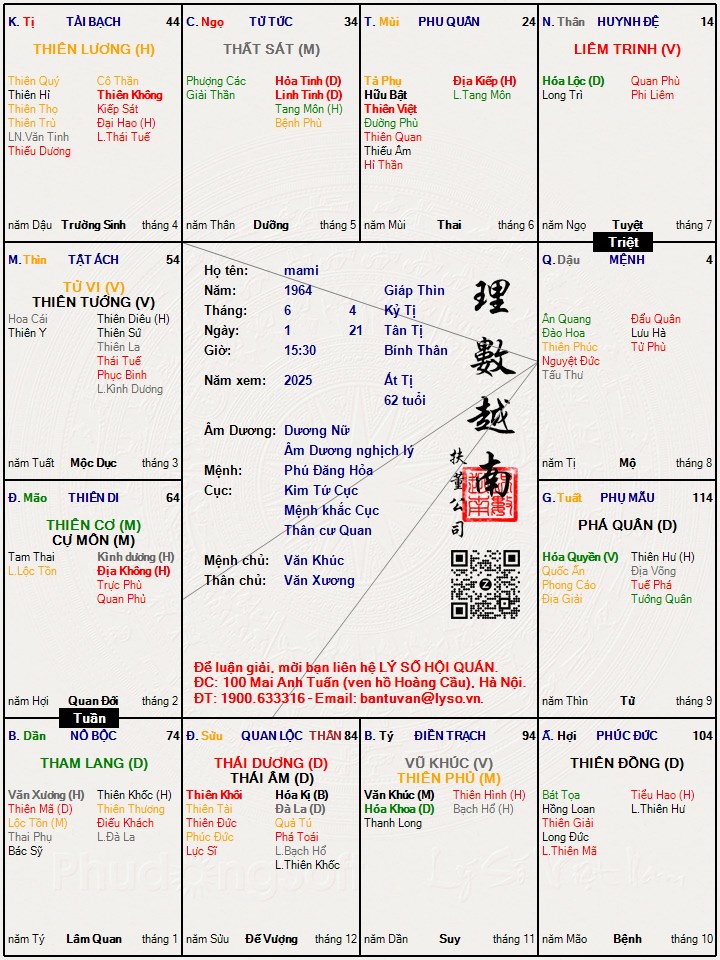 K. Tị TÀI BẠCH 44
THIÊN LƯƠNG (H)
Thiên Quý Cô Thần
Thiên Hỉ Thiên Không
Thiên Thọ Kiếp Sát
Thiên Trù Đại Hao (H)
LN.Văn Tinh L.Thái Tuế
Thiếu Dương
năm Dậu Trường Sinh tháng 4
C. Ngọ TỬ TỨC 34
THẤT SÁT (M)
Phượng Các Hỏa Tinh (D)
Giải Thần Linh Tinh (D)
Tang Môn (H)
Bệnh Phù
năm Thân Dưỡng tháng 5
T. Mùi PHU QUÂN 24
Tả Phụ Địa Kiếp (H)
Hữu Bật L.Tang Môn
Thiên Việt
Đường Phù
Thiên Quan
Thiếu Âm
Hỉ Thần
năm Mùi Thai tháng 6
N. Thân HUYNH ĐỆ 14
LIÊM TRINH (V)
Hóa Lộc (D) Quan Phù
Long Trì Phi Liêm
năm Ngọ Tuyệt tháng 7
Triệt
M. Thìn TẬT ÁCH 54
TỬ VI (V)
THIÊN TƯỚNG (V)
Hoa Cái Thiên Diêu (H)
Thiên Y Thiên Sứ
Thiên La
Thái Tuế
Phục Binh
L.Kình Dương
năm Tuất Mộc Dục tháng 3
Họ tên: mami
Năm: 1964 Giáp Thìn
Tháng: 6 4 Kỷ Tị
Ngày: 1 21 Tân Tị
Giờ: 15:30 Bính Thân
Năm xem: 2025 Ất Tị
62 tuổi
Âm Dương: Dương Nữ
Âm Dương nghịch lý
Mệnh: Phú Đăng Hỏa
Cục: Kim Tứ Cục
Mệnh khắc Cục
Thân cư Quan
Mệnh chủ: Văn Khúc
Thân chủ: Văn Xương
理數越南
扶董公司
Để luận giải, mời bạn liên hệ LÝ SỐ HỘI QUÁN.
ĐC: 100 Mai Anh Tuấn (ven hồ Hoàng Cầu), Hà Nội.
ĐT: 1900.633316 - Email: bantuvan@lyso.vn.
Q. Dậu MỆNH 4
Ân Quang Đẩu Quân
Đào Hoa Lưu Hà
Thiên Phúc Tử Phù
Nguyệt Đức
Tấu Thư
năm Tị Mộ tháng 8
Đ. Mão THIÊN DI 64
THIÊN CƠ (M)
CỰ MÔN (M)
Tam Thai Kình dương (H)
L.Lộc Tồn Địa Không (H)
Trực Phù
Quan Phủ
năm Hợi Quan Đới tháng 2
Tuần
G. Tuất PHỤ MẪU 114
PHÁ QUÂN (D)
Hóa Quyền (V) Thiên Hư (H)
Quốc Ấn Địa Võng
Phong Cáo Tuế Phá
Địa Giải Tướng Quân
năm Thìn Tử tháng 9
B. Dần NÔ BỘC 74
THAM LANG (D)
Văn Xương (H) Thiên Khốc (H)
Thiên Mã (D) Thiên Thương
Lộc Tồn (M) Điếu Khách
Thai Phụ L.Đà La
Bác Sỹ
năm Tý Lâm Quan tháng 1
Đ. Sửu QUAN LỘC THÂN 84
THÁI DƯƠNG (D)
THÁI ÂM (D)
Thiên Khôi Hóa Kị (B)
Thiên Tài Đà La (D)
Thiên Đức Quả Tú
Phúc Đức Phá Toái
Lực Sĩ L.Bạch Hổ
L.Thiên Khốc
năm Sửu Đế Vượng tháng 12
B. Tý ĐIỀN TRẠCH 94
VŨ KHÚC (V)
THIÊN PHỦ (M)
Văn Khúc (M) Thiên Hình (H)
Hóa Khoa (D) Bạch Hổ (H)
Thanh Long
năm Dần Suy tháng 11
Ấ. Hợi PHÚC ĐỨC 104
THIÊN ĐỒNG (D)
Bát Tọa Tiểu Hao (H)
Hồng Loan L.Thiên Hư
Thiên Giải
Long Đức
L.Thiên Mã
năm Mão Bệnh tháng 10